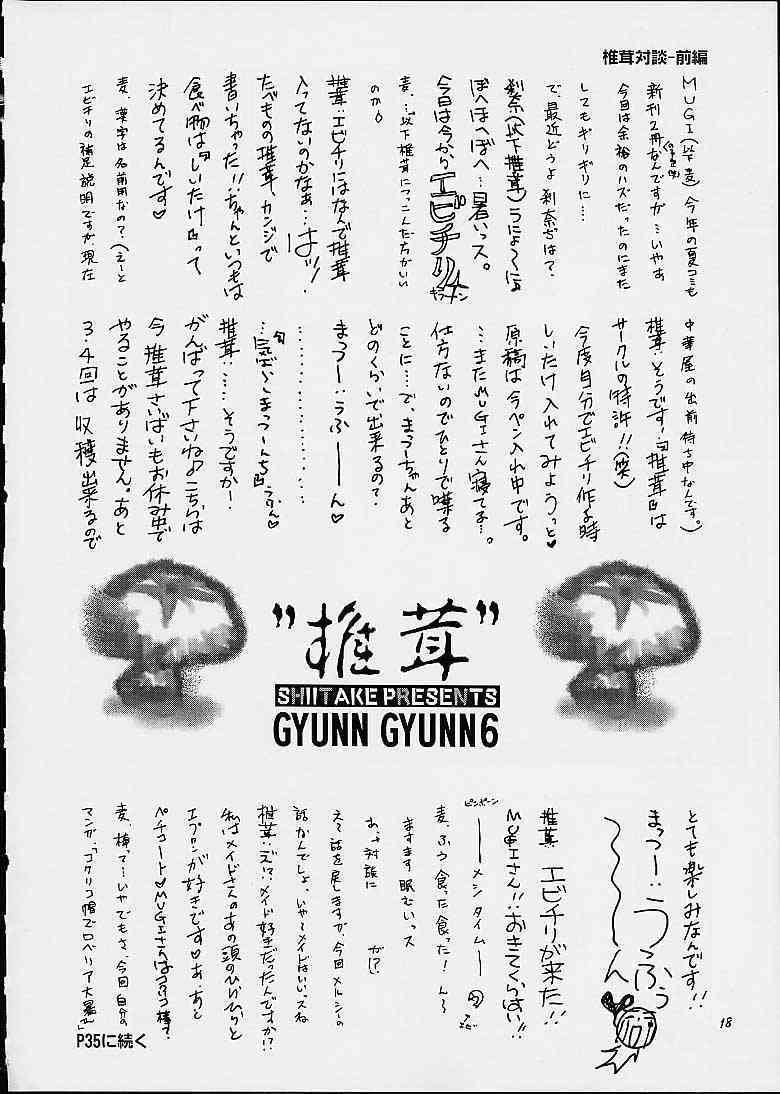 椎茸対談-前編
MUGI(以下麦)今年の夏コミも
新刊2冊なんですが…いやぁ
今回は余裕のハズだったのにまた
してもギリギリに…
で、最近どうよ刹奈ちは?
刹奈(以下椎茸)うにょ〜くにょ
ぼへほへぼへ…暑いっス。
今日は今からエビチリ
麦:…以下椎茸につっこんだ方がいい
のか
椎茸:エビチリにはなんで椎茸
入ってないのかなぁ…はッ!
たべものの椎茸、カンジで
書いちゃった!!…ちゃんといつもは
食べ物は『しいたけ』って
決めてるんです♥
麦:漢字は名前用なの?(えーと
エビチリの補足説明ですが、現在
中華屋の出前待ち中なんです。)
椎茸:そうです!『椎茸』は
サークルの特許!!(笑)
今度自分でエビチリ作る時
しいたけ入れてみようっと♥
原稿は今ペン入れ中です。
…またMUGIさん寝てる…。
仕方ないのでひとりで喋る
ことに…で、まっつーちゃんあと
どのくらいで出来るの?
まっつー:うふーーん♥
………………………
椎茸:……そうですかー!
がんばって下さいね♪こちらは
今椎茸さいばいもお休み中で
やることがありません。あと
3・4回は収穫出来るので
"椎茸"
SHIITAKE PRESENTS
GYUNN GYUNN 6
とても楽しみなんです!!
まっつー:うっふぅ
〜〜〜〜ん
椎茸:エビチリが来た!!
MUGIさん!!おきてくらはい!!
ピンポーン
──メシタイム──
麦:ふう食った食った!ん〜
ますます眠むいっス
あっ対談に が!?
えて話を戻しますが、今回メルシーの
話かんでしょ、いや〜メイドはいいっスね
椎茸:えっ?メイド好きだったんですか!?
私はメイドさんのあの頭のひらひらと
エプロンが好きです♥あ、あと
ペチコート♥MUGIさんはコクリコ棒?
麦:棒って…いやでもさ、今回自分の
マンガ、「コクリコ帽でロベリア大暴走」
P35に続く
18